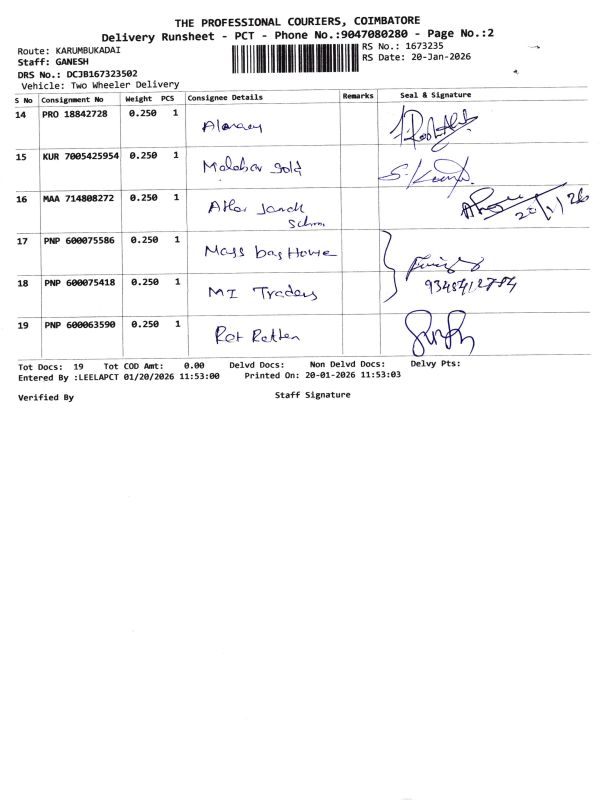 THE PROFESSIONAL COURIERS, COIMBATORE
Delivery Runsheet - PCT - Phone No.:9047080280 - Page No.:2
Route: KARUMBUKADAI
RS No.: 1673235
Staff: GANESH
RS Date: 20-Jan-2026
DRS No.: DCJB167323502
Vehicle: Two Wheeler Delivery
S No Consignment No Weight PCS Consignee Details Remarks Seal & Signature
14 PRO 18842728 0.250 1
15 KUR 7005425954 0.250 1 Malabar gold
16 MAA 714808272 0.250 1
20/1/26
17 PNP 600075586 0.250 1 Mass bag House
18 PNP 600075418 0.250 1 MI Traders
19 PNP 600063590 0.250 1
Tot Docs: 19 Tot COD Amt: 0.00 Delvd Docs: Non Delvd Docs: Delvy Pts:
Entered By :LEELAPCT 01/20/2026 11:53:00 Printed On: 20-01-2026 11:53:03
Verified By Staff Signature